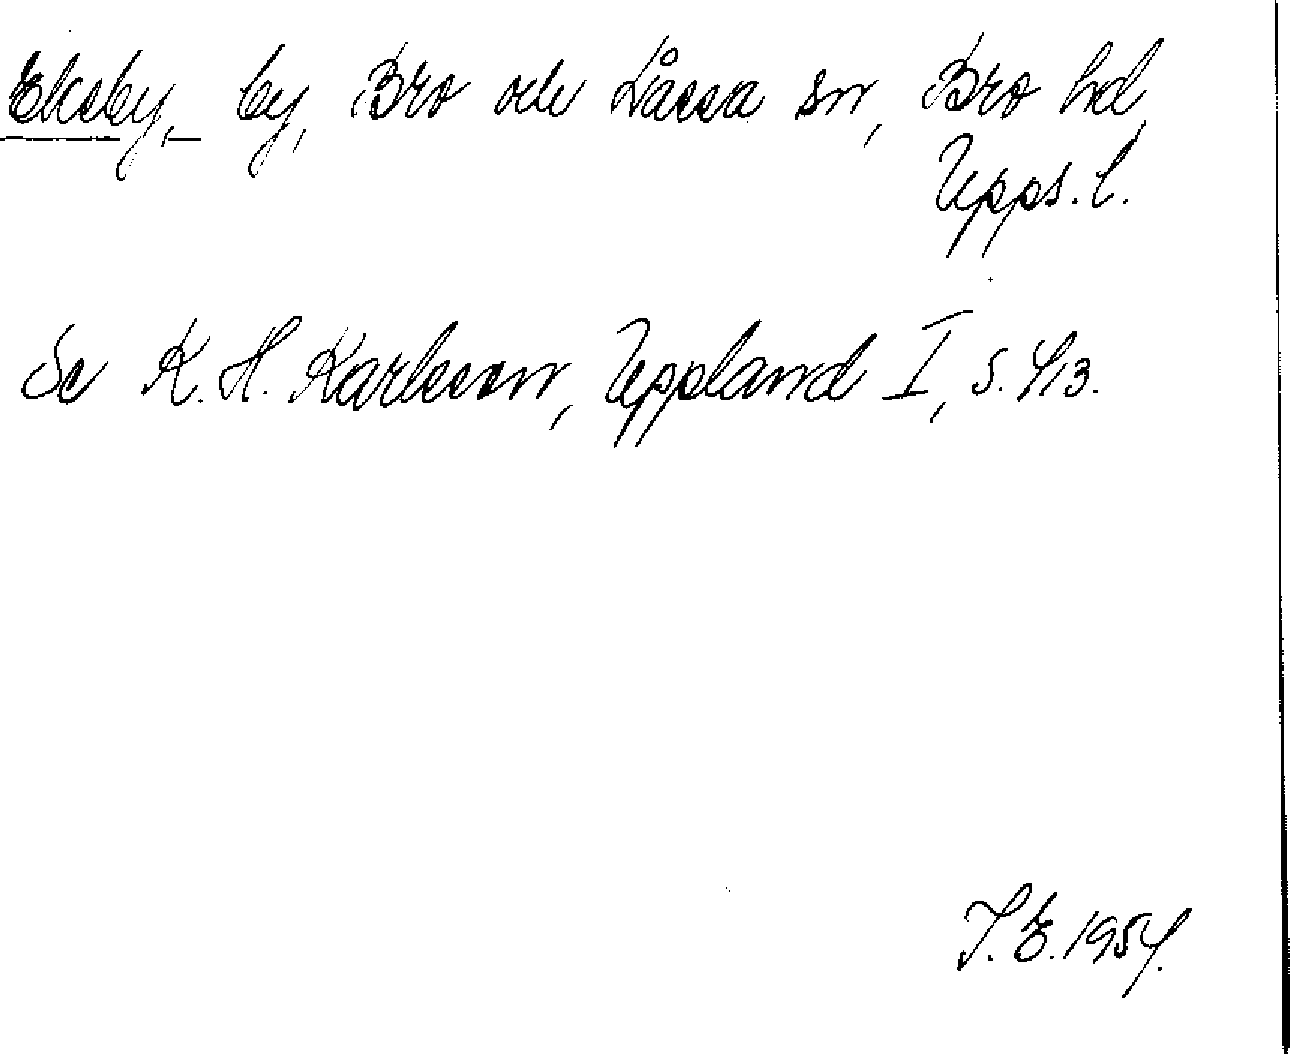 Eksby, by, Bro och Låssa sn, Bro hd,
Upps. l.
Se K. H. Karlsson, Uppland I, s. 43.
I. E. 1954.